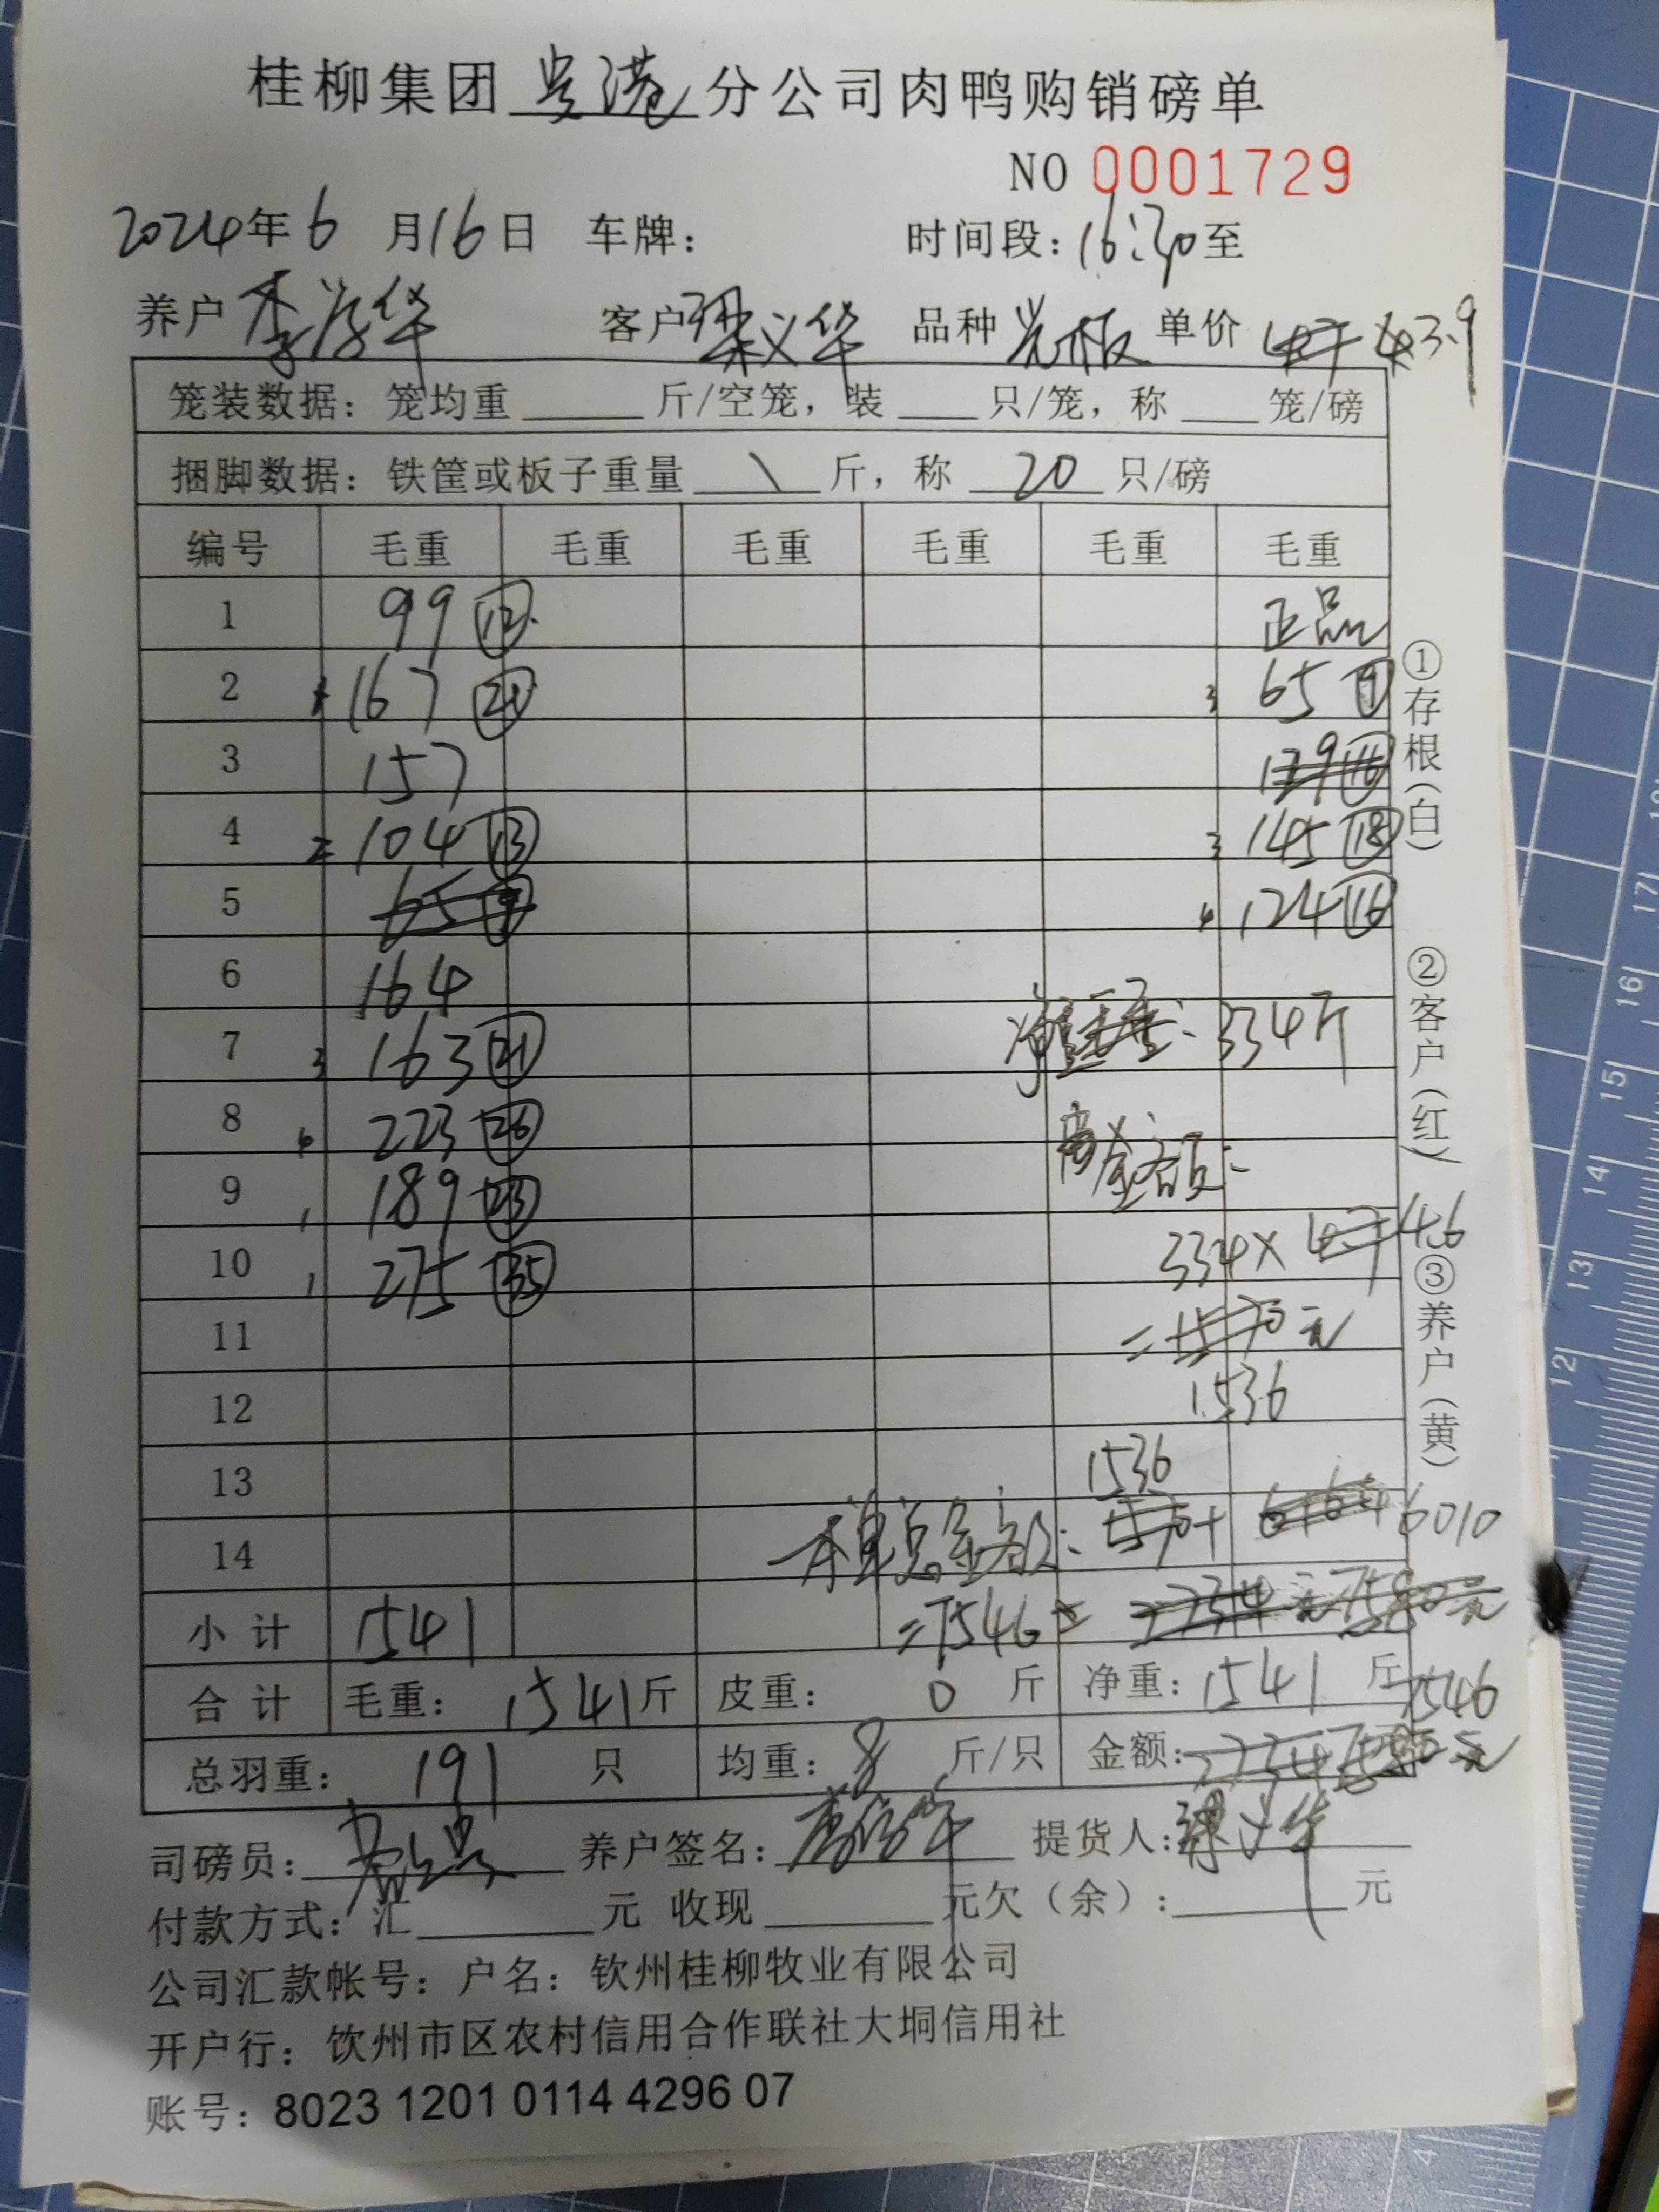 桂柳集团贵港分公司肉鸭购销磅单
NO 0001729
2024年6月16日 车牌： 时间段：16:30至
养户 李 华 客户 梁义华 品种 光板 单价 3.9
笼装数据：笼均重 斤/空笼，装 只/笼，称 笼/磅
捆脚数据：铁筐或板子重量 \ 斤，称 20 只/磅
编号 毛重 毛重 毛重 毛重 毛重 毛重
1 99 ⑫ 正品
2 167 ㉑ 3 65 ⑨
3 157 16
4 2 104 ⑬ 3 145 ⑱
5 65 4 124 ⑯
6 164
7 3 163 ㉑ 净重： 334斤
8 4 223 ㉖
9 1 189 ㉓ 金额：
10 1 275 ㉟ 334× 4.6
11 = 1570 元
12 1536
13 1536
14 本单总金额： 1570+ 6010
小计 1541 =7546
合计 毛重： 1541斤 皮重： 0 斤 净重：1541 斤 7546
总羽重： 191 只 均重：8 斤/只 金额： 元
司磅员： 养户签名： 提货人：梁义华
付款方式：汇 元 收现 元欠（余）： 元
公司汇款帐号：户名：钦州桂柳牧业有限公司
开户行：饮州市区农村信用合作联社大垌信用社
账号：8023 1201 0114 4296 07
①存根（白）
②客户（红）
③养户（黄）
17
16
15
14
13
12
4